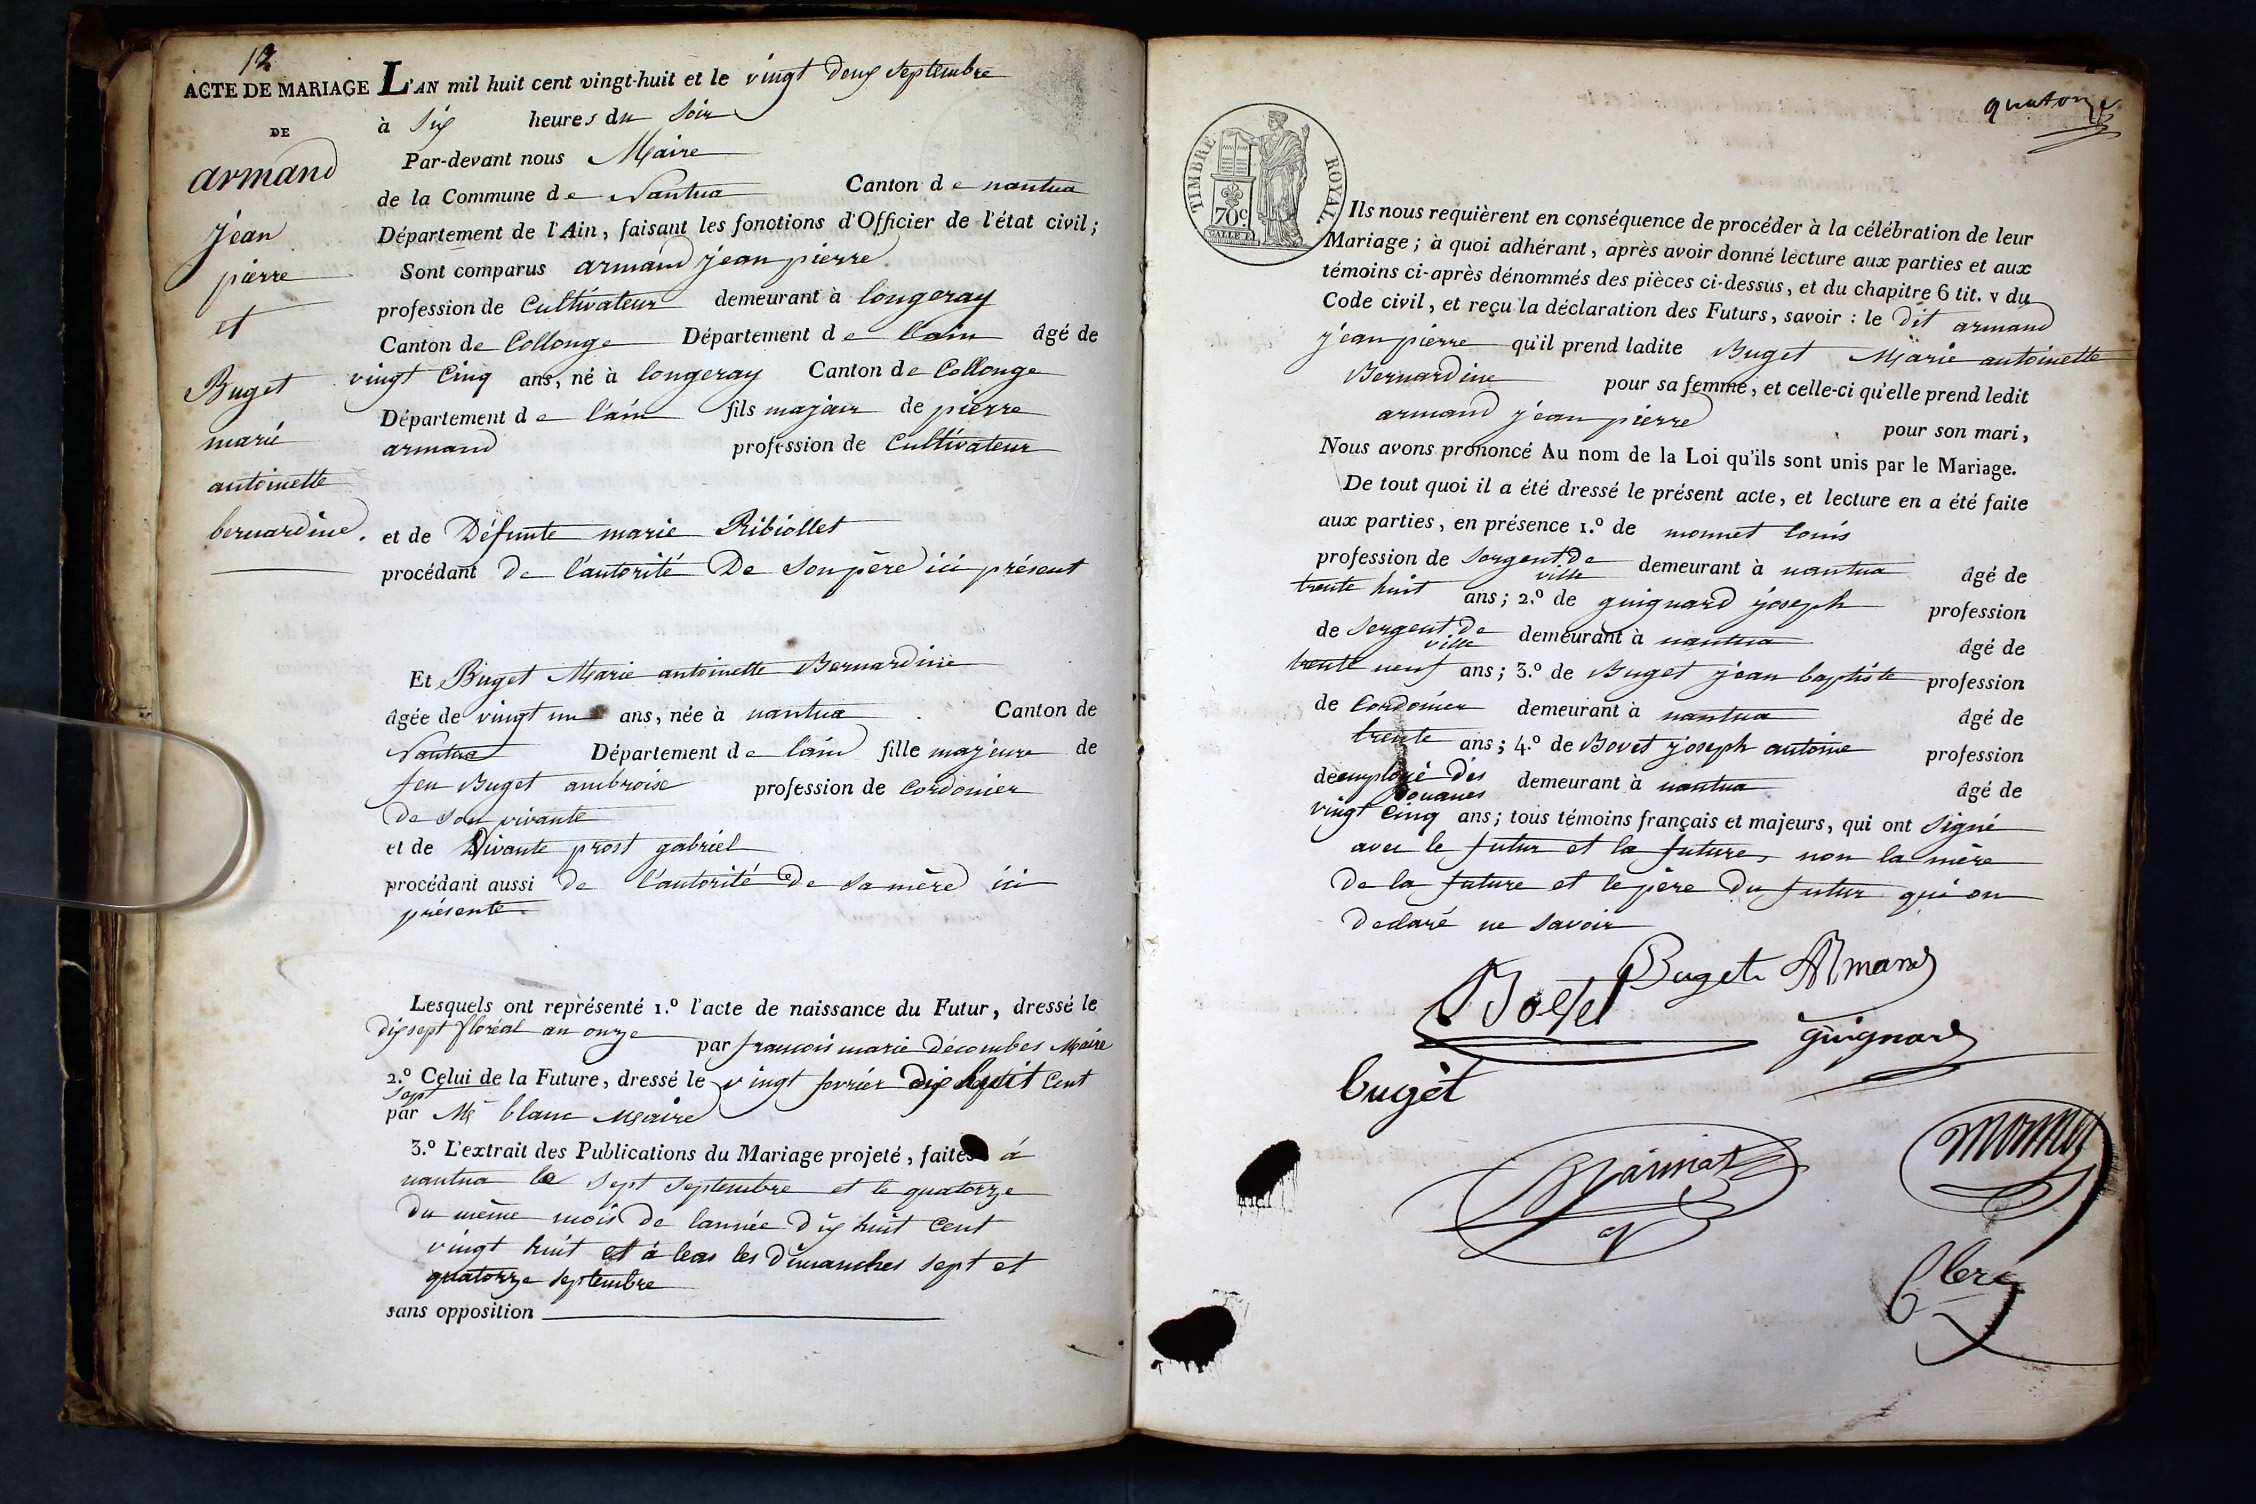 12
ACTE DE MARIAGE
DE
armand
jean
pierre
et
Buget
marie
antoinette
bernardine.
L'AN mil huit cent vingt-huit et le vingt deux septembre
à six heures du soir
Par-devant nous Maire
de la Commune de Nantua Canton de nantua
Département de l'Ain, faisant les fonctions d'Officier de l'état civil;
Sont comparus armand jean pierre
profession de Cultivateur demeurant à longeray
Canton de Collonge Département de lain âgé de
vingt Cinq ans, né à longeray Canton de Collonge
Département de l'ain fils majeur de pierre
armand profession de Cultivateur
et de Défunte marie Ribiollet
procédant de l'autorité De Son père ici présent
Et Buget Marie antoinette Bernardine
âgée de vingt un ans, née à nantua Canton de
Nantua Département de lain fille majeure de
feu Buget ambroise profession de Cordonier
De Son vivante
et de Vivante prost gabriel
procédant aussi de l'autorité De Sa mère ici
présente.
Lesquels ont représenté 1.º l'acte de naissance du Futur, dressé le
dix sept floréal an onze par francois marie Décombes Maire
2.º Celui de la Future, dressé le vingt fevrier dix huit Cent
sept
par Mr blanc Maire
3.º L'extrait des Publications du Mariage projeté, faites à
nantua le sept septembre et le quatorze
Du même mois De lannée Dix huit Cent
vingt huit et à leas les Dimanches sept et
quatorze septembre
sans opposition
quatorze
TIMBRE ROYAL.
70c
Ils nous requièrent en conséquence de procéder à la célébration de leur
Mariage; à quoi adhérant, après avoir donné lecture aux parties et aux
témoins ci-après dénommés des pièces ci-dessus, et du chapitre 6 tit. v du
Code civil, et reçu la déclaration des Futurs, savoir : le dit armand
jean pierre qu'il prend ladite Buget Marie antoinette
Bernardine pour sa femme, et celle-ci qu'elle prend ledit
armand jean pierre pour son mari,
Nous avons prononcé Au nom de la Loi qu'ils sont unis par le Mariage.
De tout quoi il a été dressé le présent acte, et lecture en a été faite
aux parties, en présence 1.º de monnet louis
profession de Sergent de ville demeurant à nantua âgé de
trente huit ans; 2.º de guignard joseph profession
de Sergent de ville demeurant à nantua âgé de
trente neuf ans; 3.º de Buget jean baptiste profession
de Cordonier demeurant à nantua âgé de
trente ans; 4.º de Bovet joseph antoine profession
de employé des Douanes demeurant à nantua âgé de
vingt Cinq ans; tous témoins français et majeurs, qui ont signé
avec le futur et la future, non la mère
De la future et le père Du futur qui on
Declaré ne savoir
Buget Armand
guignard
buget
Monnet